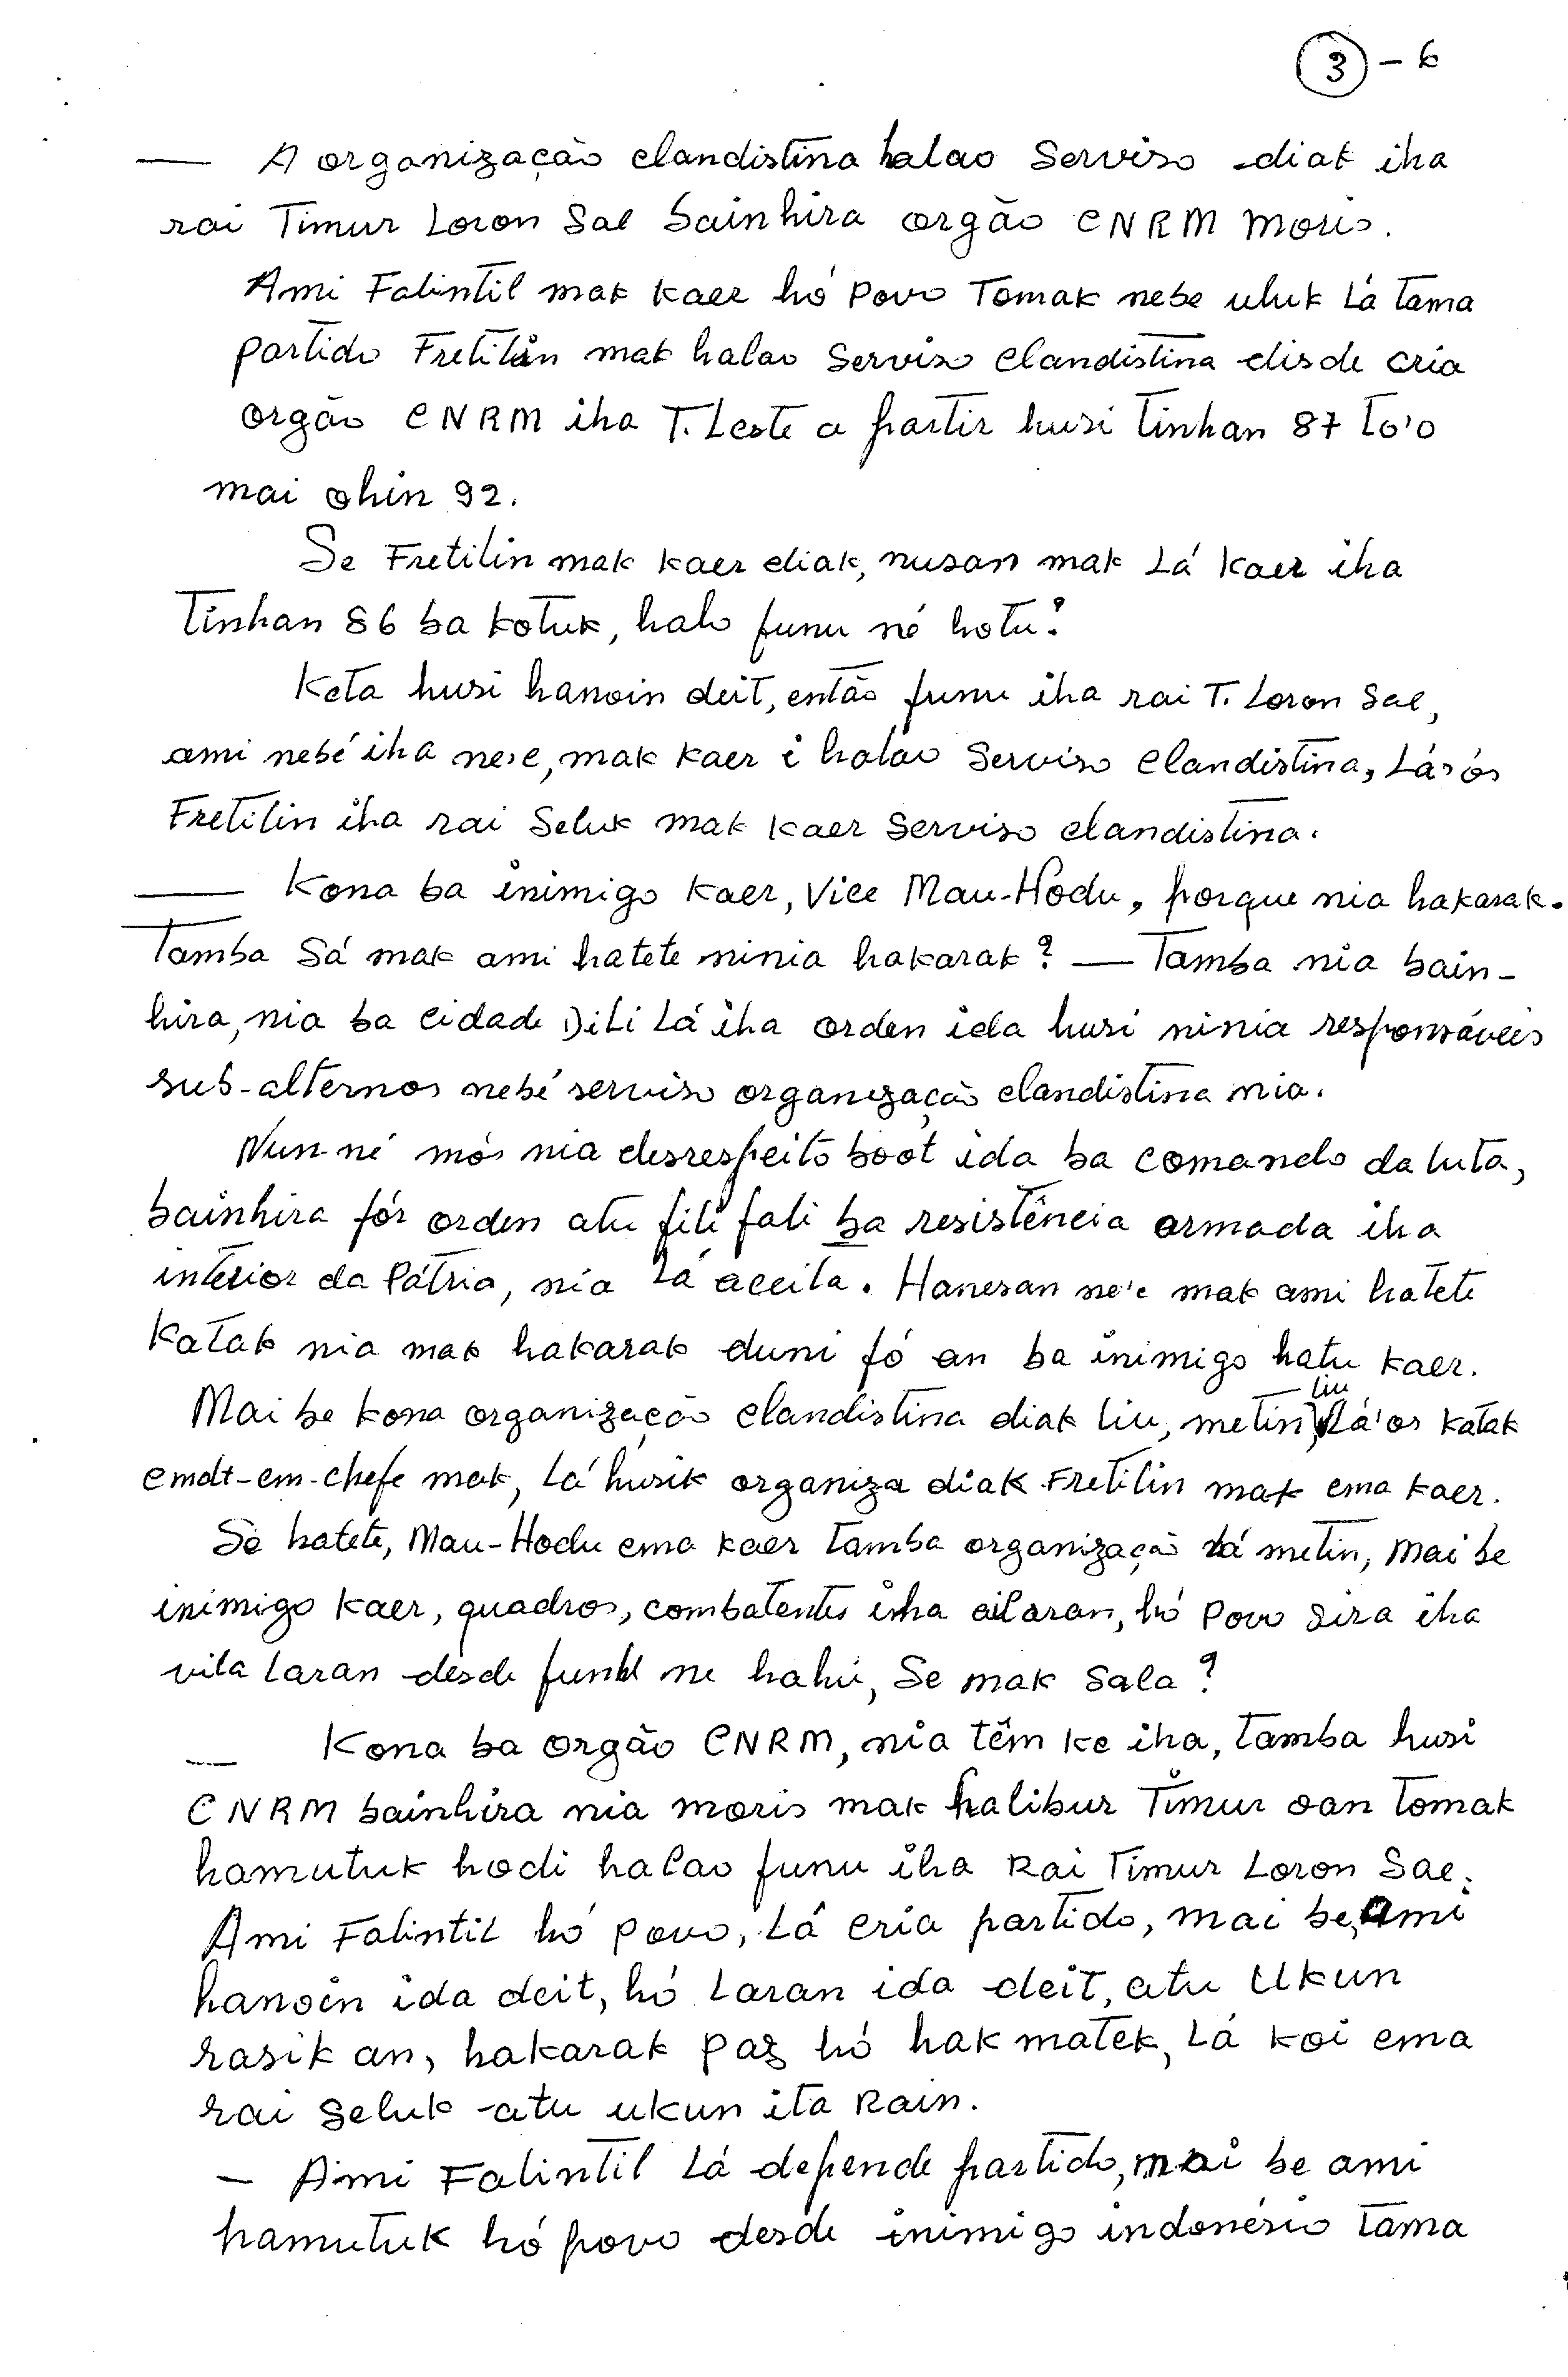 ③ - 6
— A organização clandistina halao Serviso diak iha
rai Timur Loron Sae bainhira orgão CNRM moris.
Ami Falintil mak kaer hó Povo Tomak nebe uluk Lá tama
partido Fretilin mak halao Serviso clandistina disde cria
orgão CNRM iha T. Leste a partir husi Tinhan 87 To'o
mai ohin 92.
Se Fretilin mak kaer diak, nusan mak Lá kaer iha
Tinhan 86 ba kotuk, halo funu né hotu?
Keta husi hanoin deit, então funu iha rai T. Loron Sae,
ami nebé iha ne'e, mak kaer i halao Serviso Clandistina, Lá'ós
Fretilin iha rai Seluk mak kaer Serviso clandistina.
— Kona ba inimigo kaer, Vice Mau-Hodu, porque nia hakarak.
Tamba Sá mak ami hatete ninia hakarak? — Tamba nia bain-
hira, nia ba cidade Dili Lá iha orden ida husi ninia responsáveis
sub-alternos nebé serviso organização clandistina nia.
Nun-né mós nia desrespeito boót ida ba comando da luta,
bainhira fór orden atu fili fali ba resistência armada iha
interior da Pátria, nia Lá aceita. Hanesan ne'e mak ami hatete
Katak nia mak hakarak duni fó an ba inimigo hatu kaer.
Mai be kona organização clandistina diak liu, metin liu, Lá'os katak
cmdt-em-chefe mak, Lá húsik organiza diak Fretilin mak ema kaer.
Se hatete, Mau-Hodu ema kaer tamba organização Lá metin, mai be
inimigo kaer, quadros, combatentes iha ailaran, hó Povo Sira iha
vila laran desde funu ne hahú, Se mak Sala?
— Kona ba orgão CNRM, nia têm ke iha, Tamba husi
CNRM bainhira nia moris mak halibur Timur oan Tomak
hamutuk hodi halao funu iha Rai Timur Loron Sae.
Ami Falintil hó povo, Lá cria partido, mai be, ami
hanoin ida deit, hó Laran ida deit, atu Ukun
rasik an, hakarak paz hó hak matek, Lá koi ema
rai Seluk atu ukun ita Rain.
— Ami Falintil Lá depende partido, mai be ami
hamutuk hó povo desde inimigo indonésio tama